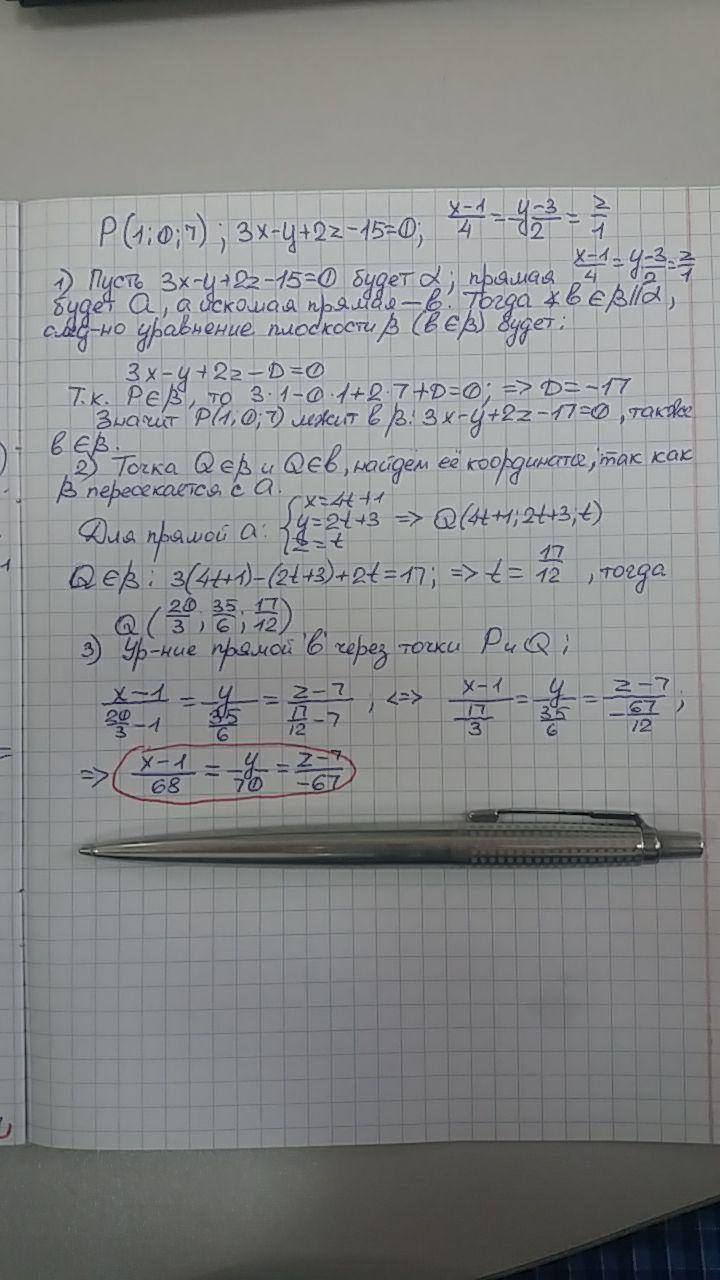 P(1;0;7); 3x-y+2z-15=0; (x-1)/4 = (y-3)/2 = z/1
1) Пусть 3x-y+2z-15=0 будет α; прямая (x-1)/4 = (y-3)/2 = z/1
будет a, а искомая прямая — в. Тогда в ∈ β || α,
след-но уравнение плоскости β (в ∈ β) будет:
3x-y+2z-D=0
Т.к. P∈β, то 3·1-0·1+2·7+D=0; => D=-17
Значит P(1;0;7) лежит в β: 3x-y+2z-17=0, также
в ∈ β.
2) Точка Q∈β и Q∈в, найдём её координаты, так как
β пересекается с a.
Для прямой a: { x=4t+1
y=2t+3 => Q(4t+1; 2t+3, t)
z=t
Q∈β: 3(4t+1)-(2t+3)+2t=17; => t = 17/12, тогда
Q(20/3; 35/6; 17/12)
3) Ур-ние прямой "в" через точки P и Q;
(x-1)/(20/3-1) = y/(35/6) = (z-7)/(17/12-7); <=> (x-1)/(17/3) = y/(35/6) = (z-7)/(-67/12);
=> (x-1)/68 = y/70 = (z-7)/-67